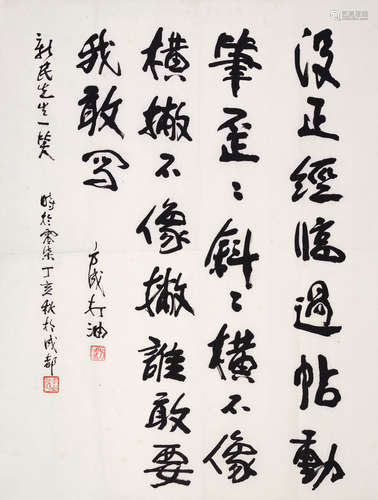 没正經临過帖動
筆歪々斜々橫不像
橫撇不像撇誰敢要
我敢写
方成打油
新民先生一笑
時於零柒丁亥秋於成都